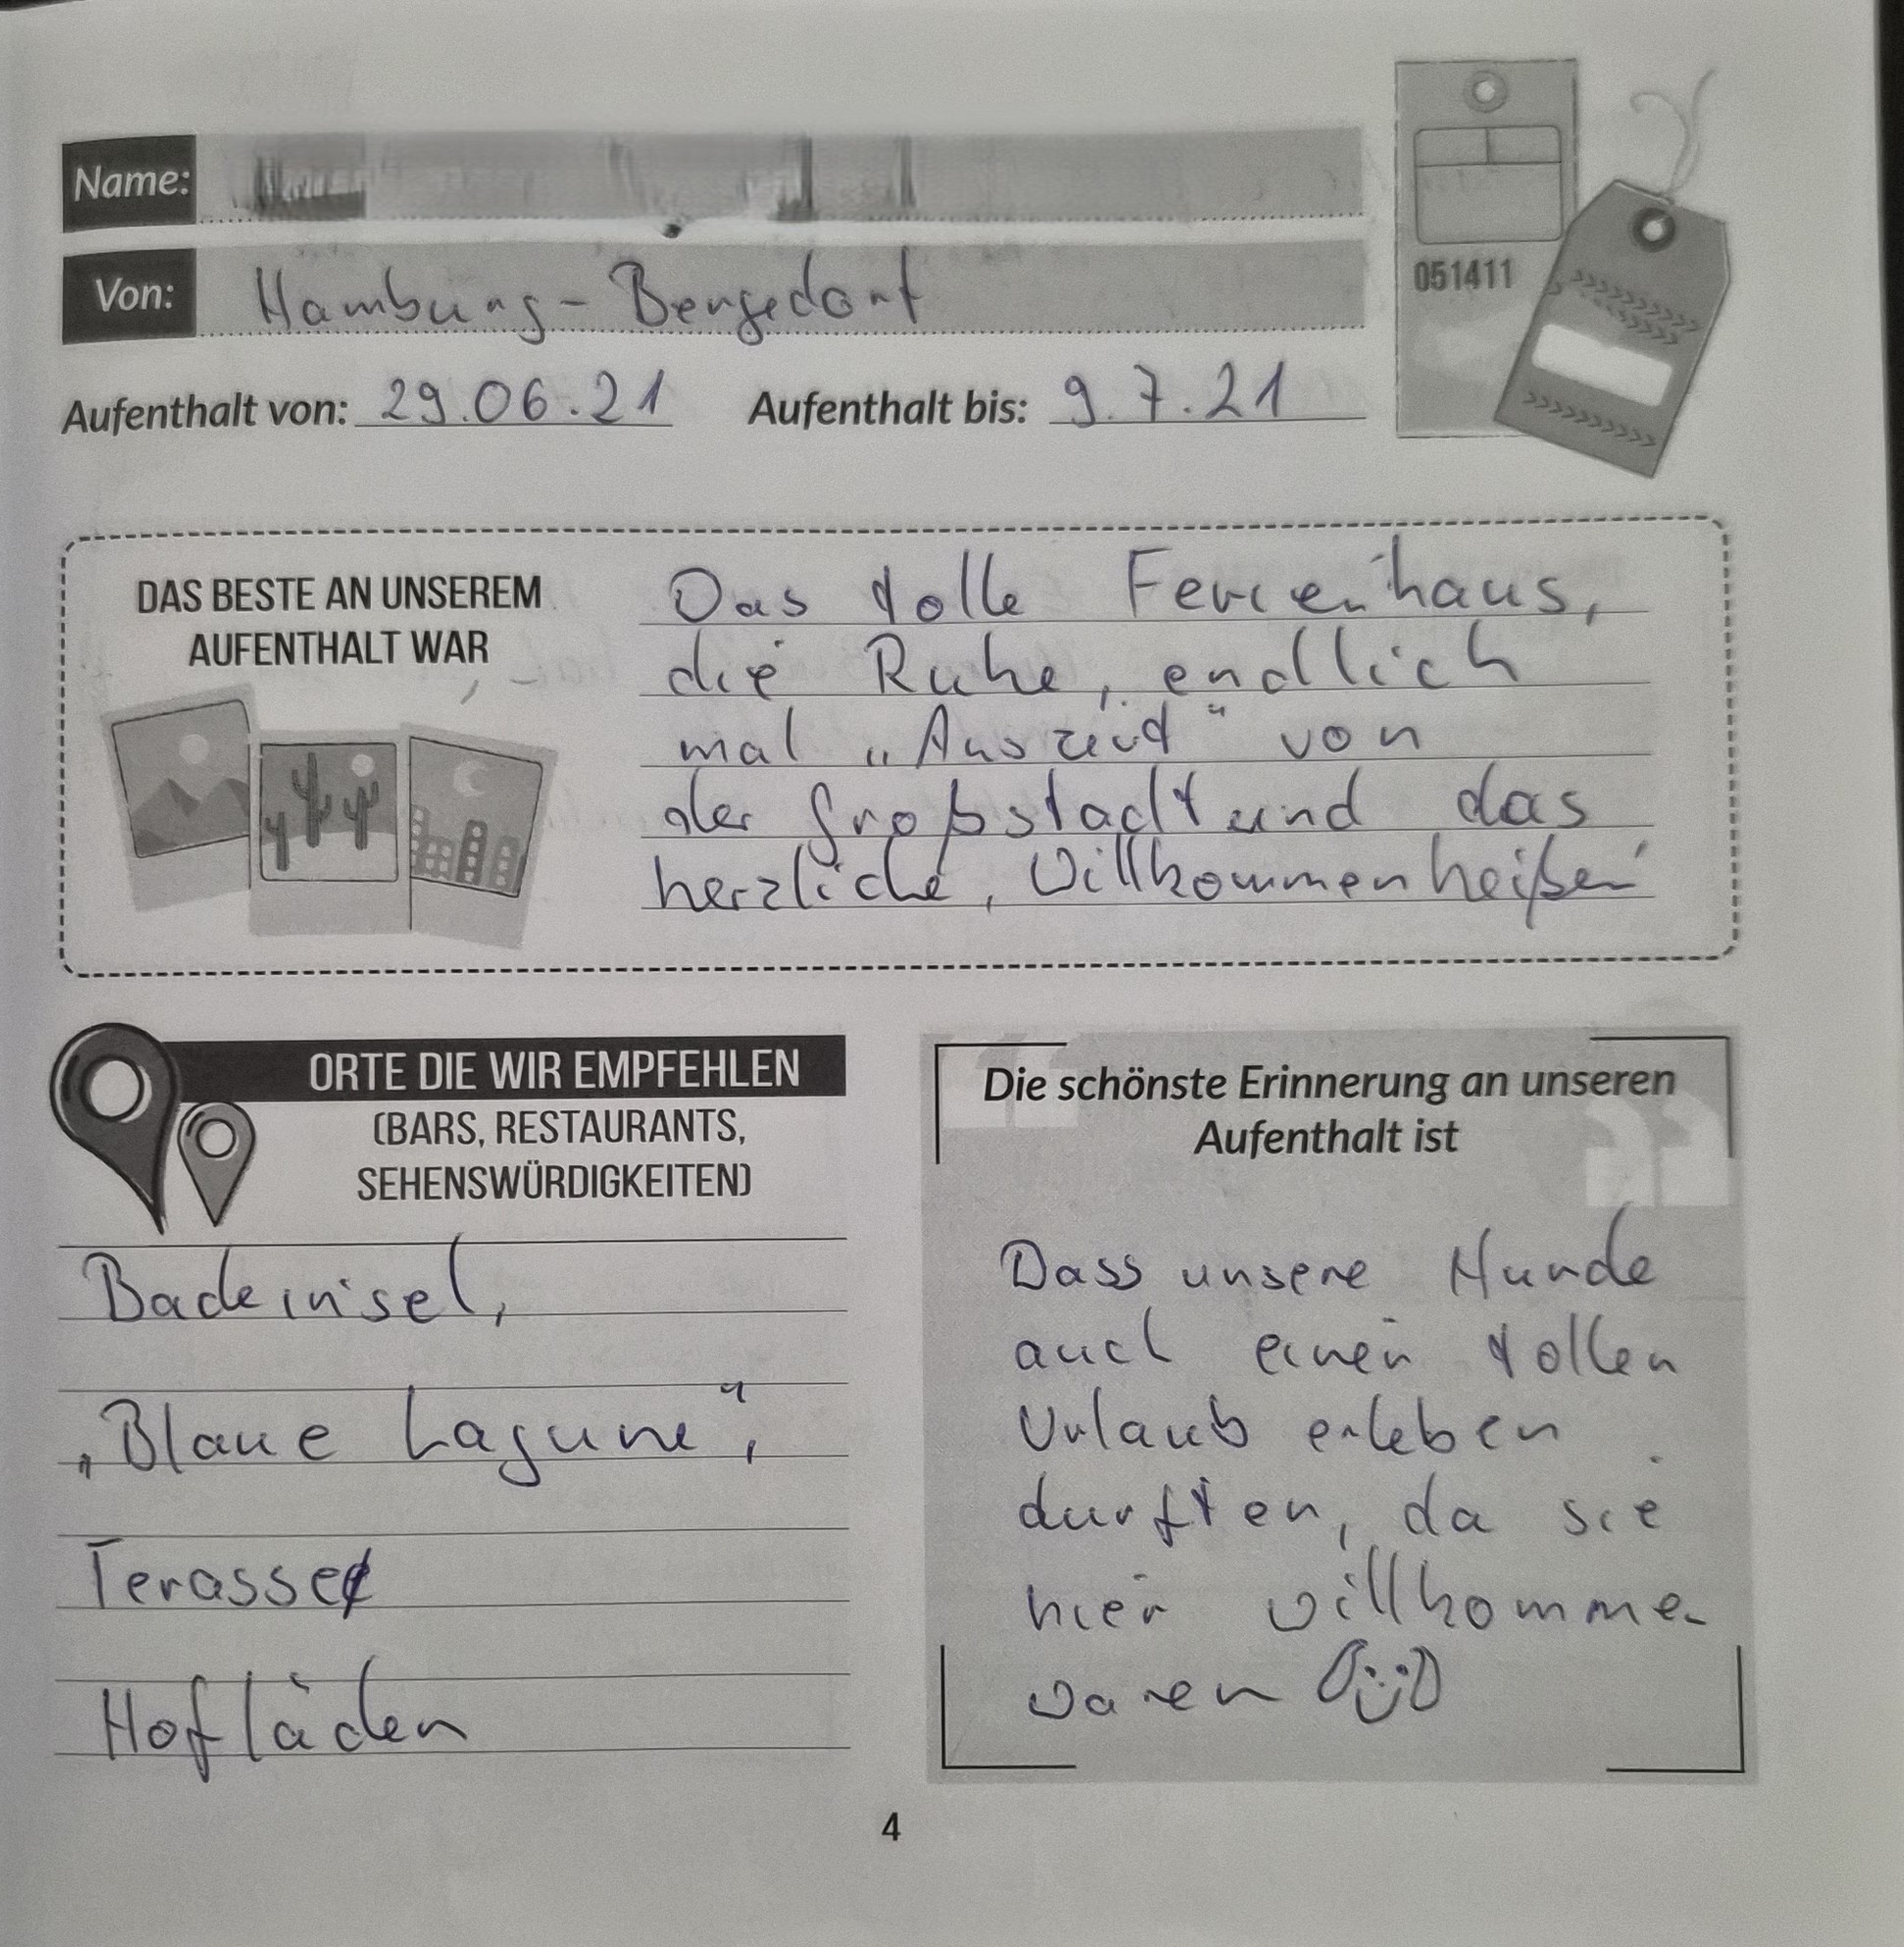 Name:
Von: Hamburg-Bergedorf
Aufenthalt von: 29.06.21 Aufenthalt bis: 9.7.21
051411
DAS BESTE AN UNSEREM
AUFENTHALT WAR
Das tolle Ferienhaus,
die Ruhe, endlich
mal „Auszeit“ von
der Großstadt und das
herzliche, Willkommenheißen‘
ORTE DIE WIR EMPFEHLEN
(BARS, RESTAURANTS,
SEHENSWÜRDIGKEITEN)
Badeinsel,
„Blaue Lagune“,
Terasse
Hofläden
Die schönste Erinnerung an unseren
Aufenthalt ist
Dass unsere Hunde
auch einen tollen
Urlaub erleben
durften, da sie
hier willkommen
waren
4